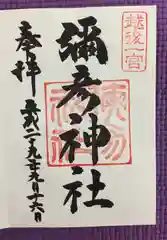 越後一宮
彌彦神社
奉拝
平成二十九年九月十六日